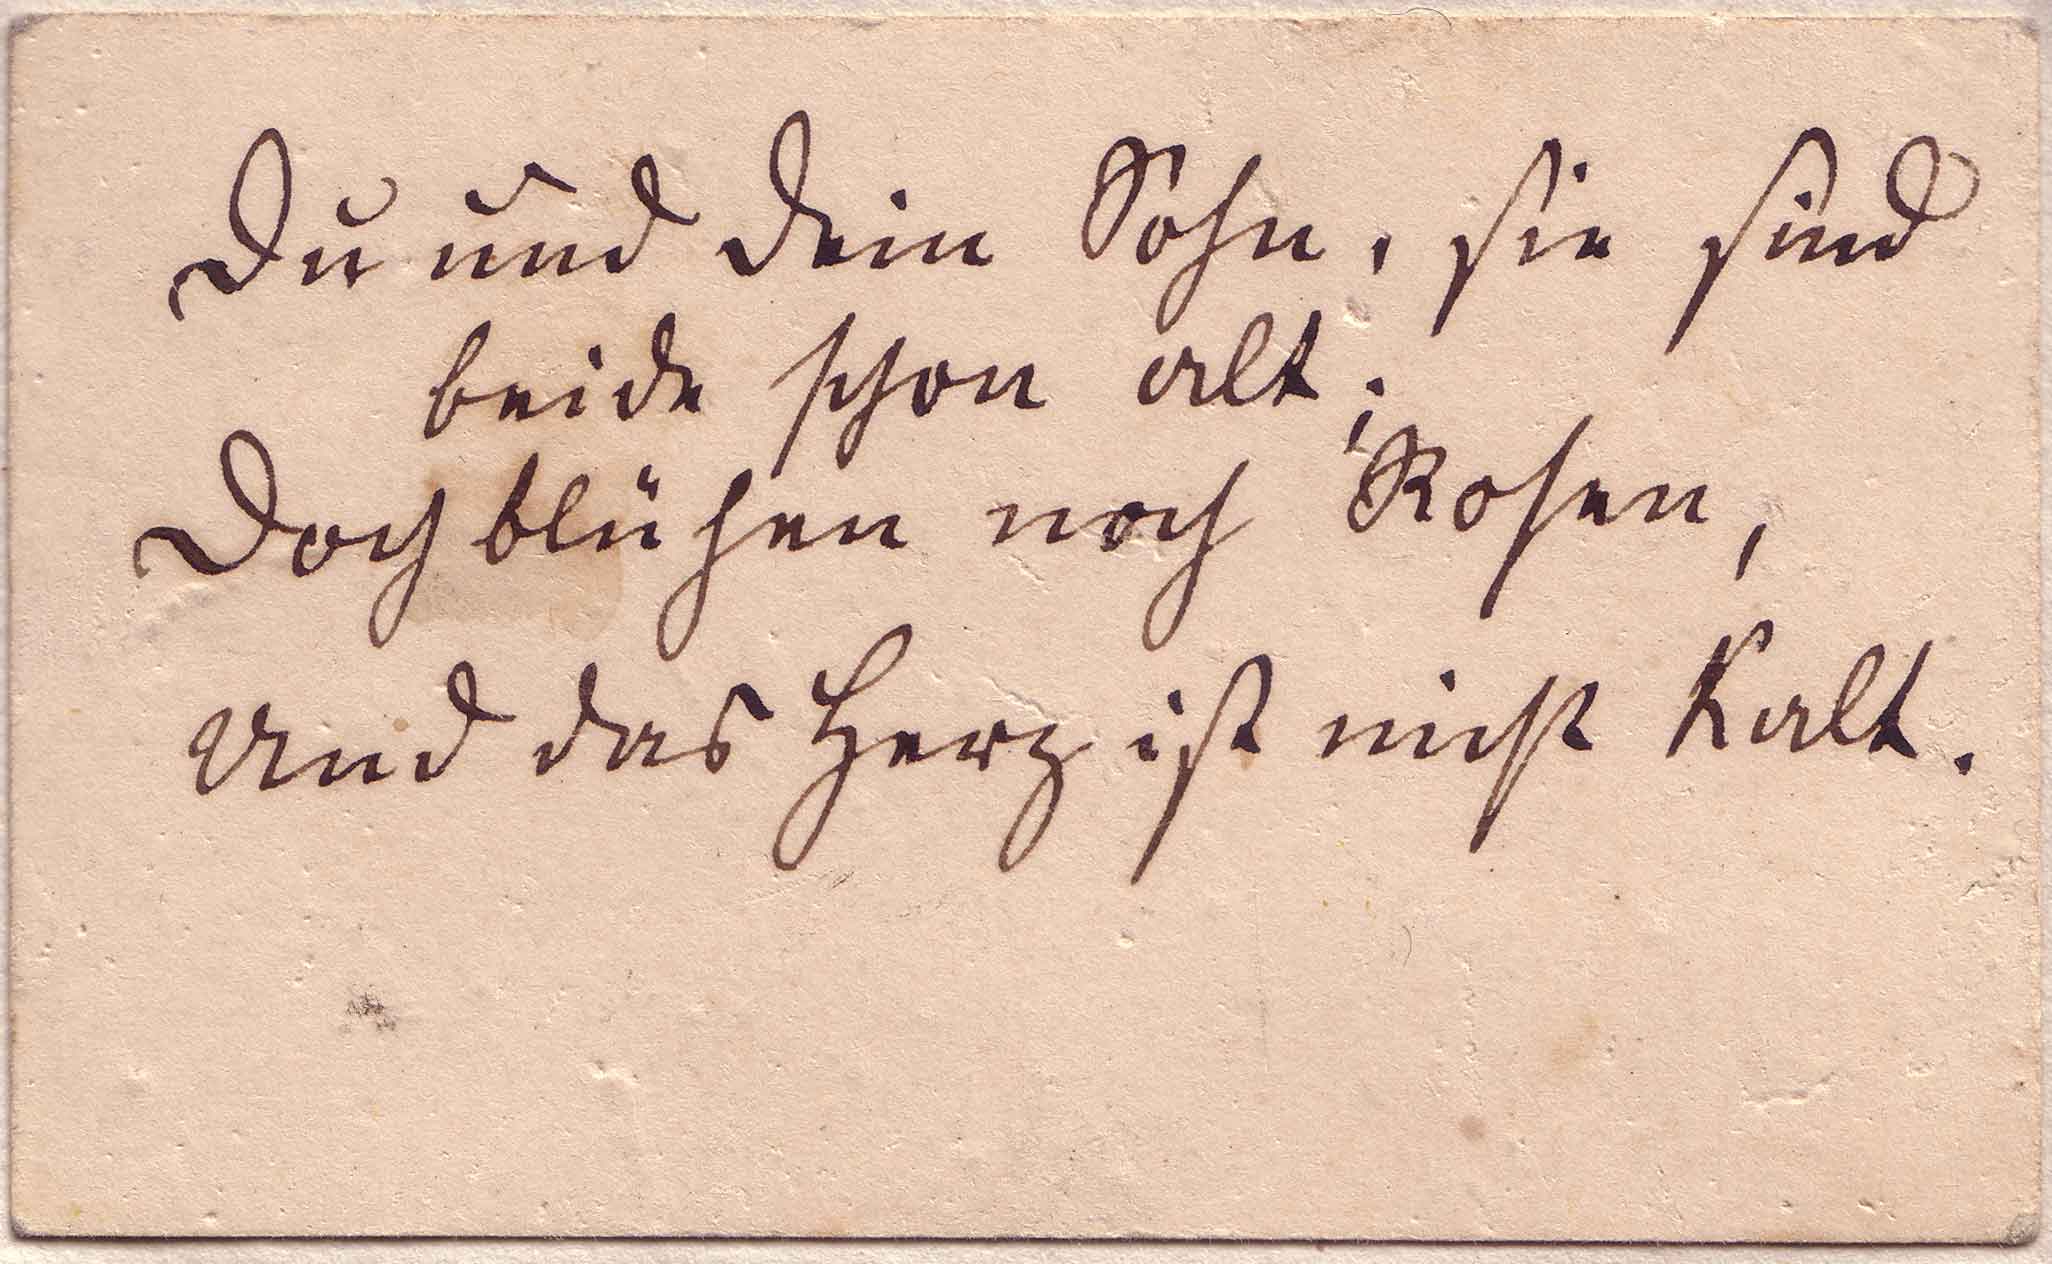 Du und dein Sohn, sie sind
beide schon alt;
Doch blühen noch Rosen,
Und das Herz ist nicht kalt.